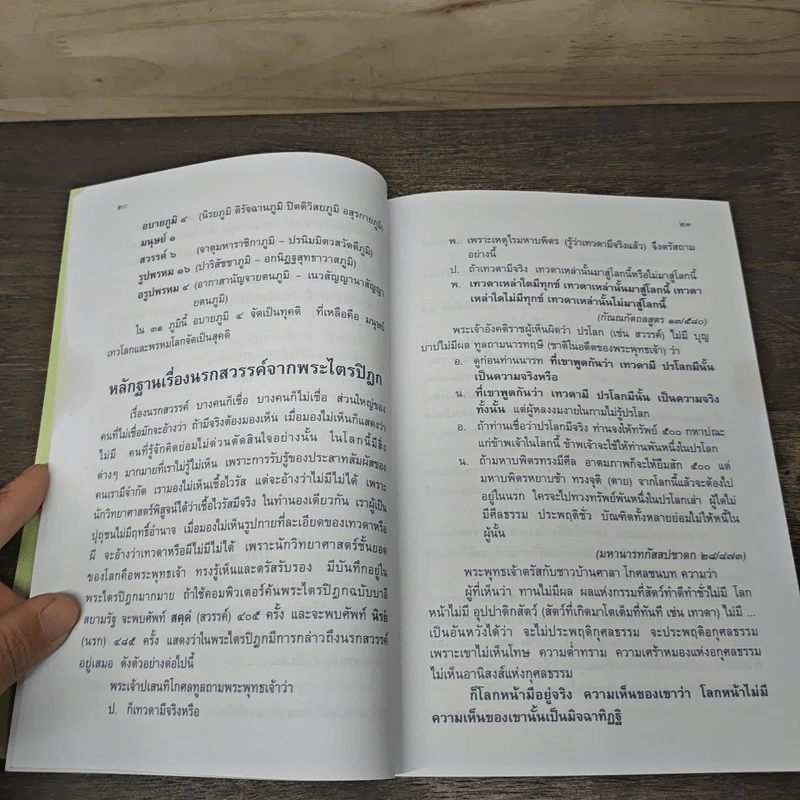 ๒๐
อบายภูมิ ๔ (นิรยภูมิ ดิรัจฉานภูมิ ปิตติวิสยภูมิ อสุรกายภูมิ)
มนุษย์ ๑
สวรรค์ ๖ (จาตุมหาราชิกาภูมิ - ปรนิมมิตวสวัตดีภูมิ)
รูปพรหม ๑๖ (ปาริสัชชาภูมิ - อกนิฏฐสุทธาวาสภูมิ)
อรูปพรหม ๔ (อากาสานัญจายตนภูมิ - เนวสัญญานาสัญญา
ยตนภูมิ)
ใน ๓๑ ภูมินี้ อบายภูมิ ๔ จัดเป็นทุคติ ที่เหลือคือ มนุษย์
เทวโลกและพรหมโลกจัดเป็นสุคติ
หลักฐานเรื่องนรกสวรรค์จากพระไตรปิฎก
เรื่องนรกสวรรค์ บางคนก็เชื่อ บางคนก็ไม่เชื่อ ส่วนใหญ่ของ
คนที่ไม่เชื่อมักจะอ้างว่า ถ้ามีจริงต้องมองเห็น เมื่อมองไม่เห็นก็แสดงว่า
ไม่มี คนที่รู้จักคิดย่อมไม่ด่วนตัดสินใจอย่างนั้น ในโลกนี้มีสิ่ง
ต่างๆ มากมายที่เราไม่รู้ไม่เห็น เพราะการรับรู้ของประสาทสัมผัสของ
คนเรามีจำกัด เรามองไม่เห็นเชื้อไวรัส แต่จะอ้างว่าไม่มีไม่ได้ เพราะ
นักวิทยาศาสตร์พิสูจน์ได้ว่าเชื้อไวรัสมีจริง ในทำนองเดียวกัน เราผู้เป็น
ปุถุชนไม่มีฤทธิ์อำนาจ เมื่อมองไม่เห็นรูปกายที่ละเอียดของเทวดาหรือ
ผี จะอ้างว่าเทวดาหรือผีไม่มีไม่ได้ เพราะนักวิทยาศาสตร์ชั้นยอด
ของโลกคือพระพุทธเจ้า ทรงรู้เห็นและตรัสรับรอง มีบันทึกอยู่ใน
พระไตรปิฎกมากมาย ถ้าใช้คอมพิวเตอร์ค้นพระไตรปิฎกฉบับบาลี
สยามรัฐ จะพบศัพท์ สคฺค (สวรรค์) ๔๐๕ ครั้ง และจะพบศัพท์ นิรย
(นรก) ๔๘๕ ครั้ง แสดงว่าในพระไตรปิฎกมีการกล่าวถึงนรกสวรรค์
อยู่เสมอ ดังตัวอย่างต่อไปนี้
พระเจ้าปเสนทิโกศลทูลถามพระพุทธเจ้าว่า
ป. ก็เทวดามีจริงหรือ
๒๑
พ. เพราะเหตุไรมหาบพิตร (รู้ว่าเทวดามีจริงแล้ว) จึงตรัสถาม
อย่างนี้
ป. ถ้าเทวดามีจริง เทวดาเหล่านั้นมาสู่โลกนี้หรือไม่มาสู่โลกนี้
พ. เทวดาเหล่าใดมีทุกข์ เทวดาเหล่านั้นมาสู่โลกนี้ เทวดา
เหล่าใดไม่มีทุกข์ เทวดาเหล่านั้นไม่มาสู่โลกนี้
(กัณณกัตถลสูตร ๑๓/๕๘๐)
พระเจ้าอังคติราชผู้เห็นผิดว่า ปรโลก (เช่น สวรรค์) ไม่มี บุญ
บาปไม่มีผล ทูลถามนารทฤษี (ชาติในอดีตของพระพุทธเจ้า) ว่า
อ. ดูก่อนท่านนารท ที่เขาพูดกันว่า เทวดามี ปรโลกมีนั้น
เป็นความจริงหรือ
น. ที่เขาพูดกันว่า เทวดามี ปรโลกมีนั้น เป็นความจริง
ทั้งนั้น แต่ผู้หลงงมงายในกามไม่รู้ปรโลก
อ. ถ้าท่านเชื่อว่าปรโลกมีจริง ท่านจงให้ทรัพย์ ๕๐๐ กหาปณะ
แก่ข้าพเจ้าในโลกนี้ ข้าพเจ้าจะใช้ให้ท่านพันหนึ่งในปรโลก
น. ถ้ามหาบพิตรทรงมีศีล อาตมภาพก็จะให้ยืมสัก ๕๐๐ แต่
มหาบพิตรหยาบช้า ทรงจุติ (ตาย) จากโลกนี้แล้วจะต้องไป
อยู่ในนรก ใครจะไปทวงทรัพย์พันหนึ่งในปรโลกเล่า ผู้ใดไม่
มีศีลธรรม ประพฤติชั่ว บัณฑิตทั้งหลายย่อมไม่ให้หนี้ใน
ผู้นั้น
(มหานารทกัสสปชาดก ๒๘/๘๗๓)
พระพุทธเจ้าตรัสกับชาวบ้านศาลา โกศลชนบท ความว่า
ผู้ที่เห็นว่า ทานไม่มีผล ผลแห่งกรรมที่สัตว์ทำดีทำชั่วไม่มี โลก
หน้าไม่มี อุปปาติกสัตว์ (สัตว์ที่เกิดมาโตเต็มที่ทันที เช่น เทวดา) ไม่มี ...
เป็นอันหวังได้ว่า จะไม่ประพฤติกุศลธรรม จะประพฤติอกุศลธรรม
เพราะเขาไม่เห็นโทษ ความต่ำทราม ความเศร้าหมองแห่งอกุศลธรรม
ไม่เห็นอานิสงส์แห่งกุศลธรรม
ก็โลกหน้ามีอยู่จริง ความเห็นของเขาว่า โลกหน้าไม่มี
ความเห็นของเขานั้นเป็นมิจฉาทิฏฐิ